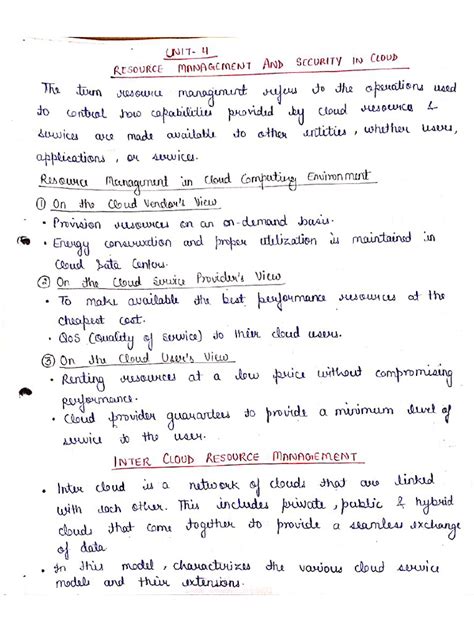 UNIT- 4
RESOURCE MANAGEMENT AND SECURITY IN CLOUD
The term resource management refers to the operations used
to control how capabilities provided by Cloud resource &
services are made available to other entities, whether users,
applications, or services.
Resource Management in Cloud Computing Environment
① On the Cloud Vendor's View
• Provision resources on an on-demand basis.
• Energy conservation and proper utilization is maintained in
Cloud Data Centers.
② On the Cloud Service Provider's View
• To make available the best performance resources at the
cheapest cost.
• QoS (Quality of Service) to their cloud users.
③ On the Cloud User's View
• Renting resources at a low price without compromising
performance.
• Cloud provider guarantees to provide a minimum level of
service to the user.
INTER CLOUD RESOURCE MANAGEMENT
• Inter cloud is a network of clouds that are linked
with each other. This includes private, public & hybrid
clouds that come together to provide a seamless exchange
of data.
• In this model, characterizes the various cloud service
models and their extensions.